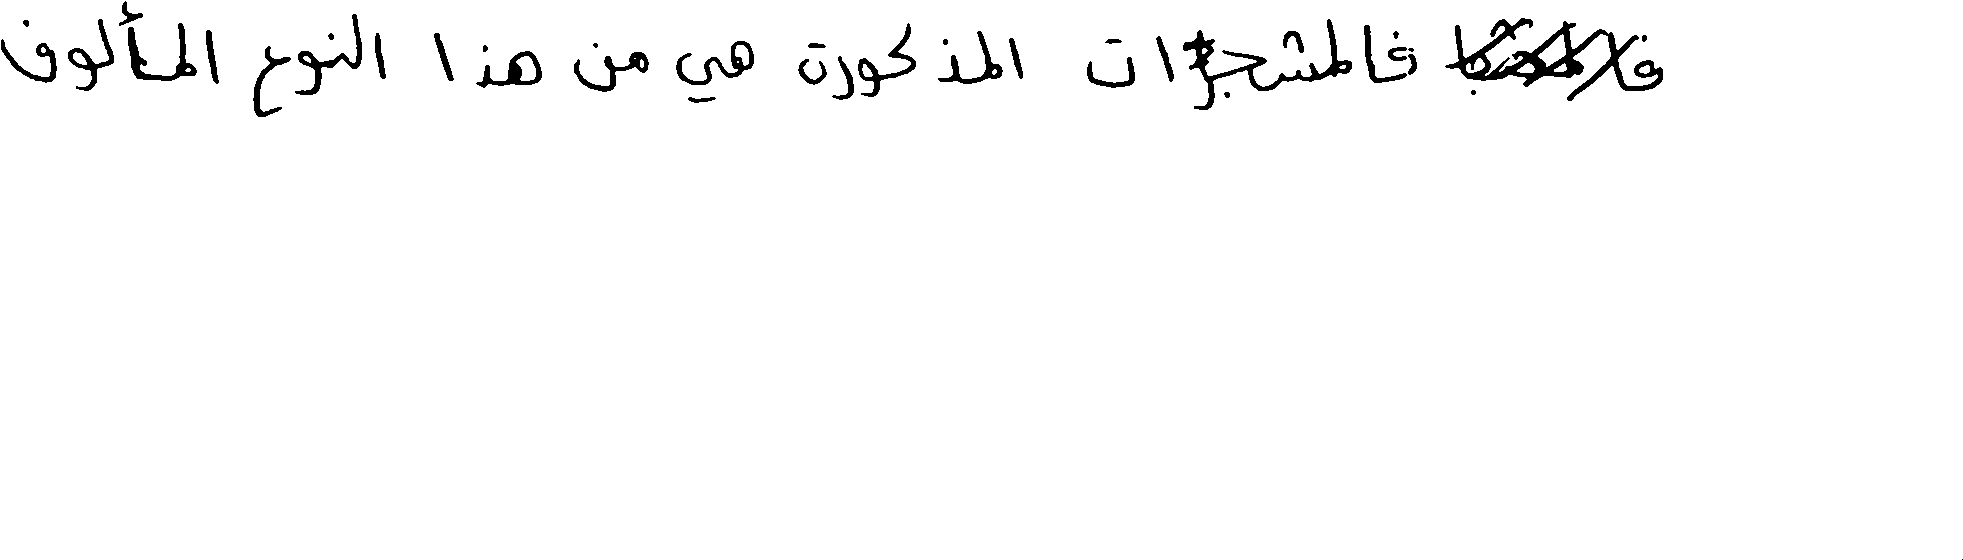 فالمشجرات المذكورة هي من هذا النوع المألوف